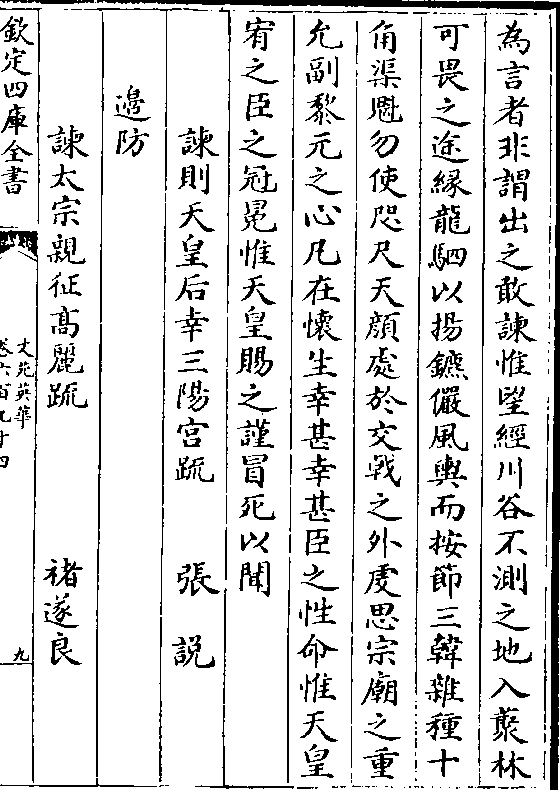 為言者非謂出之敢諫惟望經川谷不測之地入藂林
可畏之途縁龍駟以揚鑣儼風輿而按節三韓雜種十
角渠魁勿使咫尺天顔處於交戰之外虔思宗廟之重
允副黎元之心凡在懷生幸甚幸甚臣之性命惟天皇
宥之臣之冠冕惟天皇賜之謹冒死以聞
諫則天皇后幸三陽宫疏 張説
邊防
諫太宗親征髙麗疏 褚遂良
欽定四庫全書
文苑英華
卷六百九十四
九